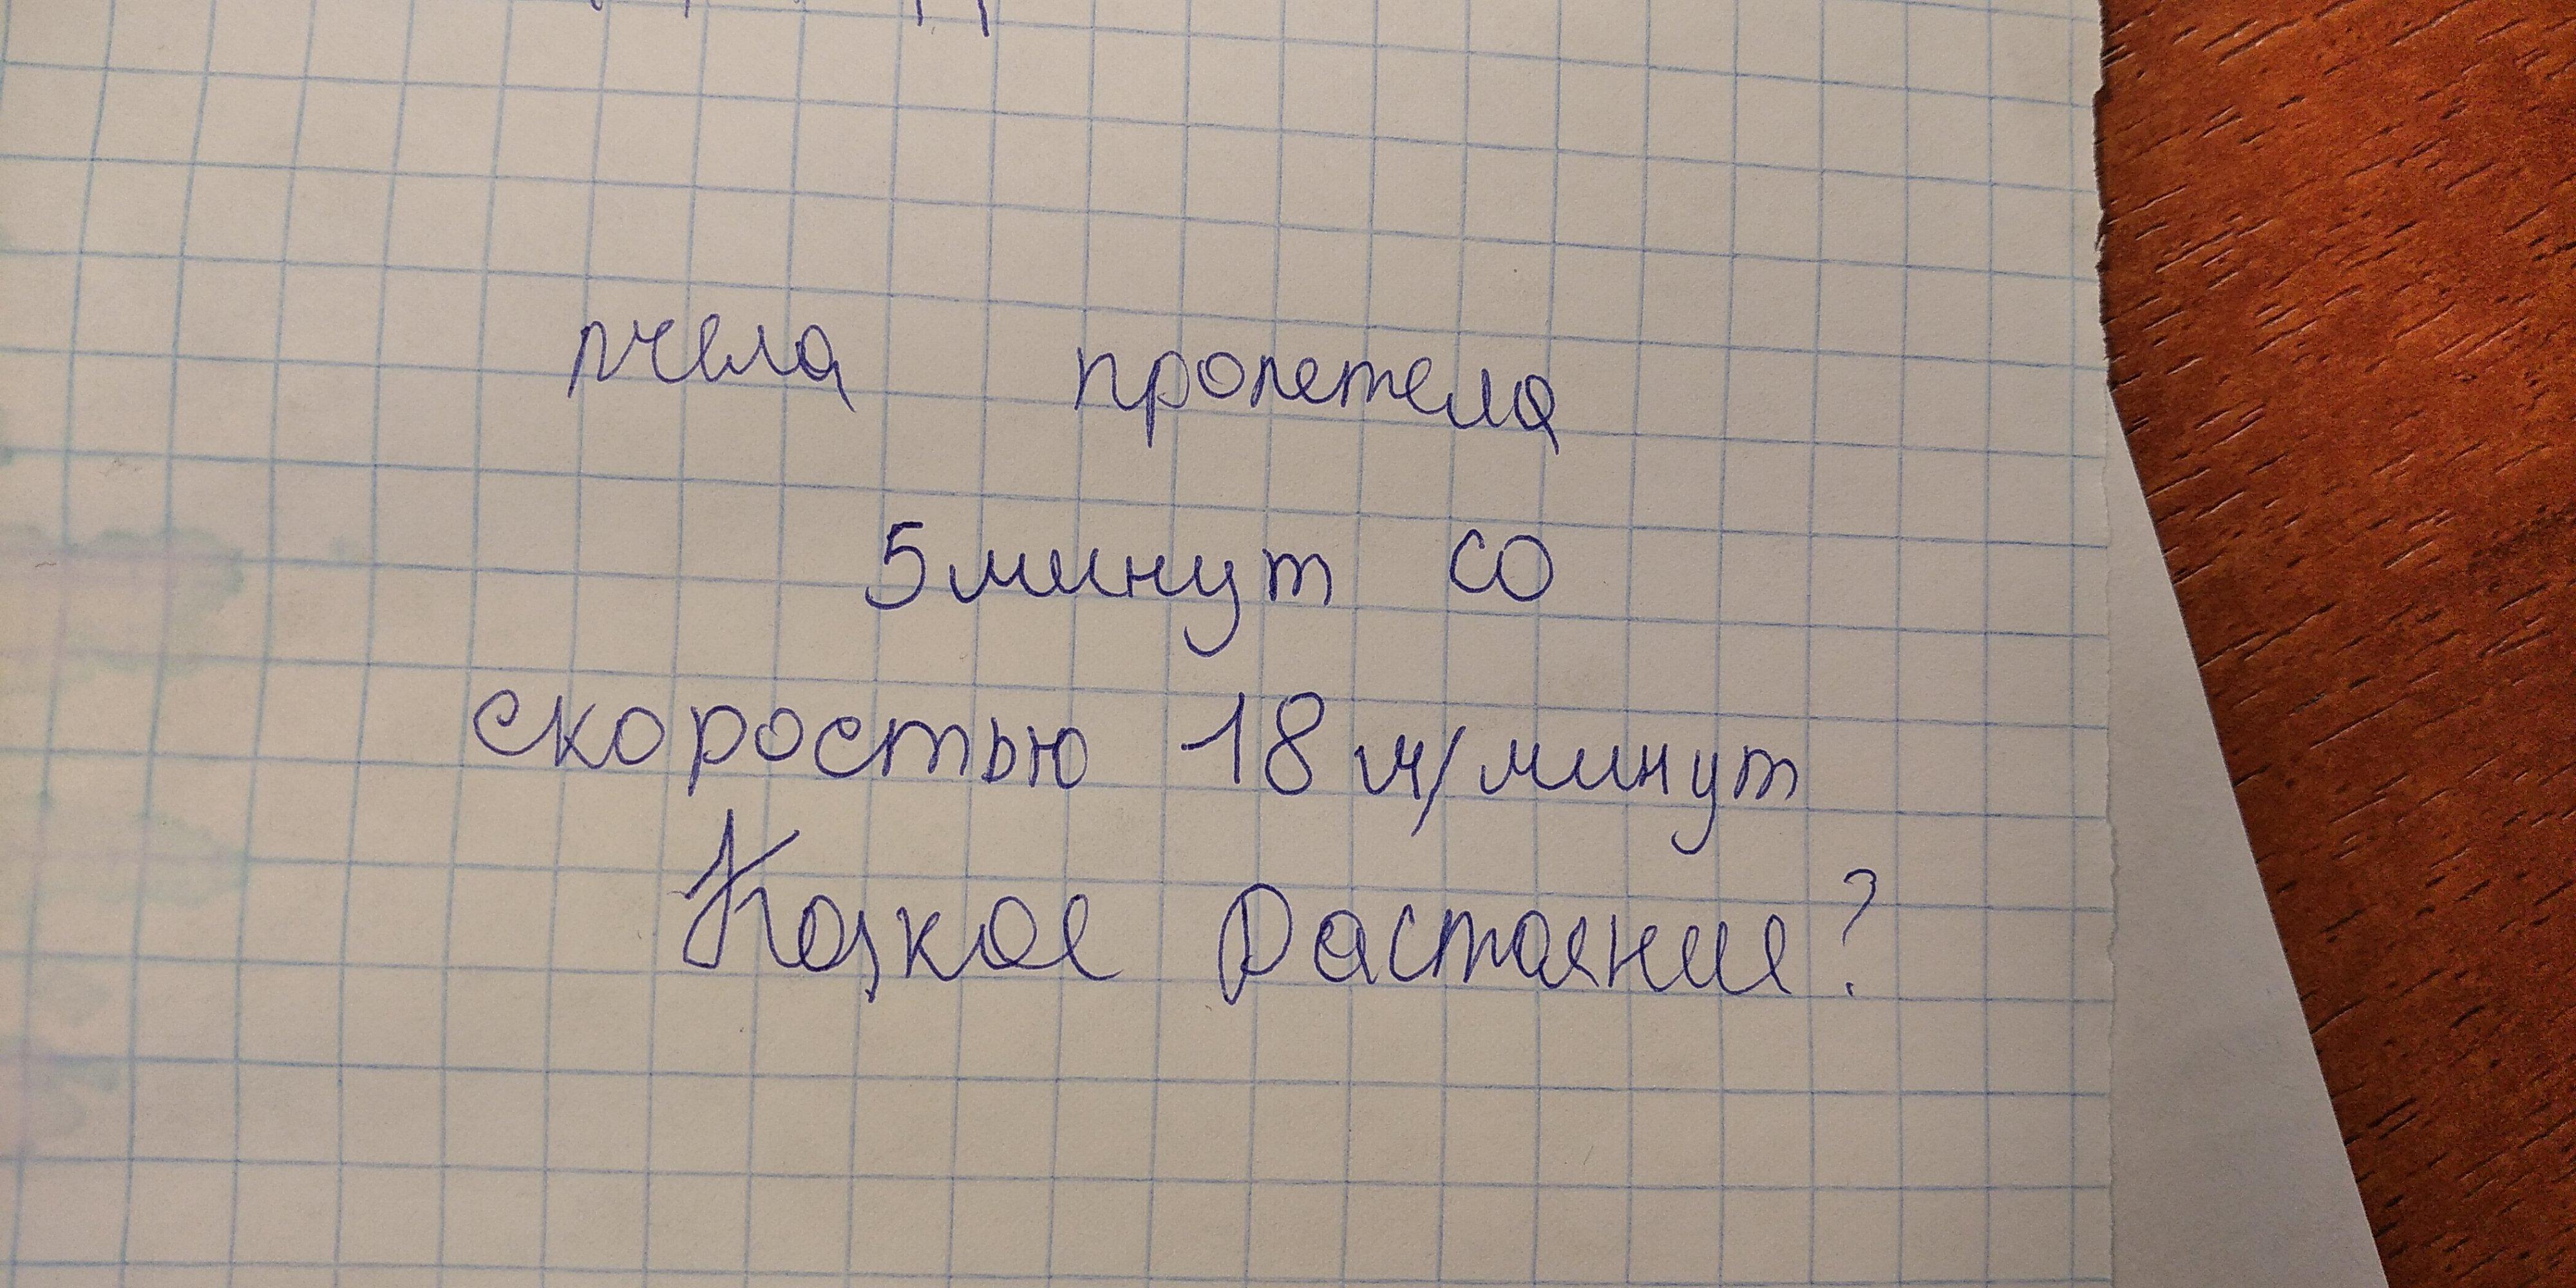 пчела пролетела
5 минут со
скоростью 18 м/минут
Какое Растояние?